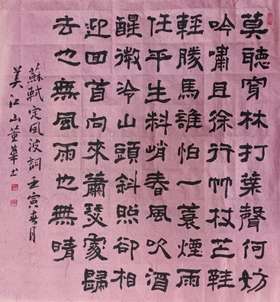 莫聽穿林打葉聲何妨
吟嘯且徐行竹杖芒鞋
輕勝馬誰怕一蓑煙雨
任平生料峭春風吹酒
醒微冷山頭斜照卻相
迎回首向來蕭瑟處歸
去也無風雨也無晴
蘇軾定風波詞壬寅春月
美江山董華书